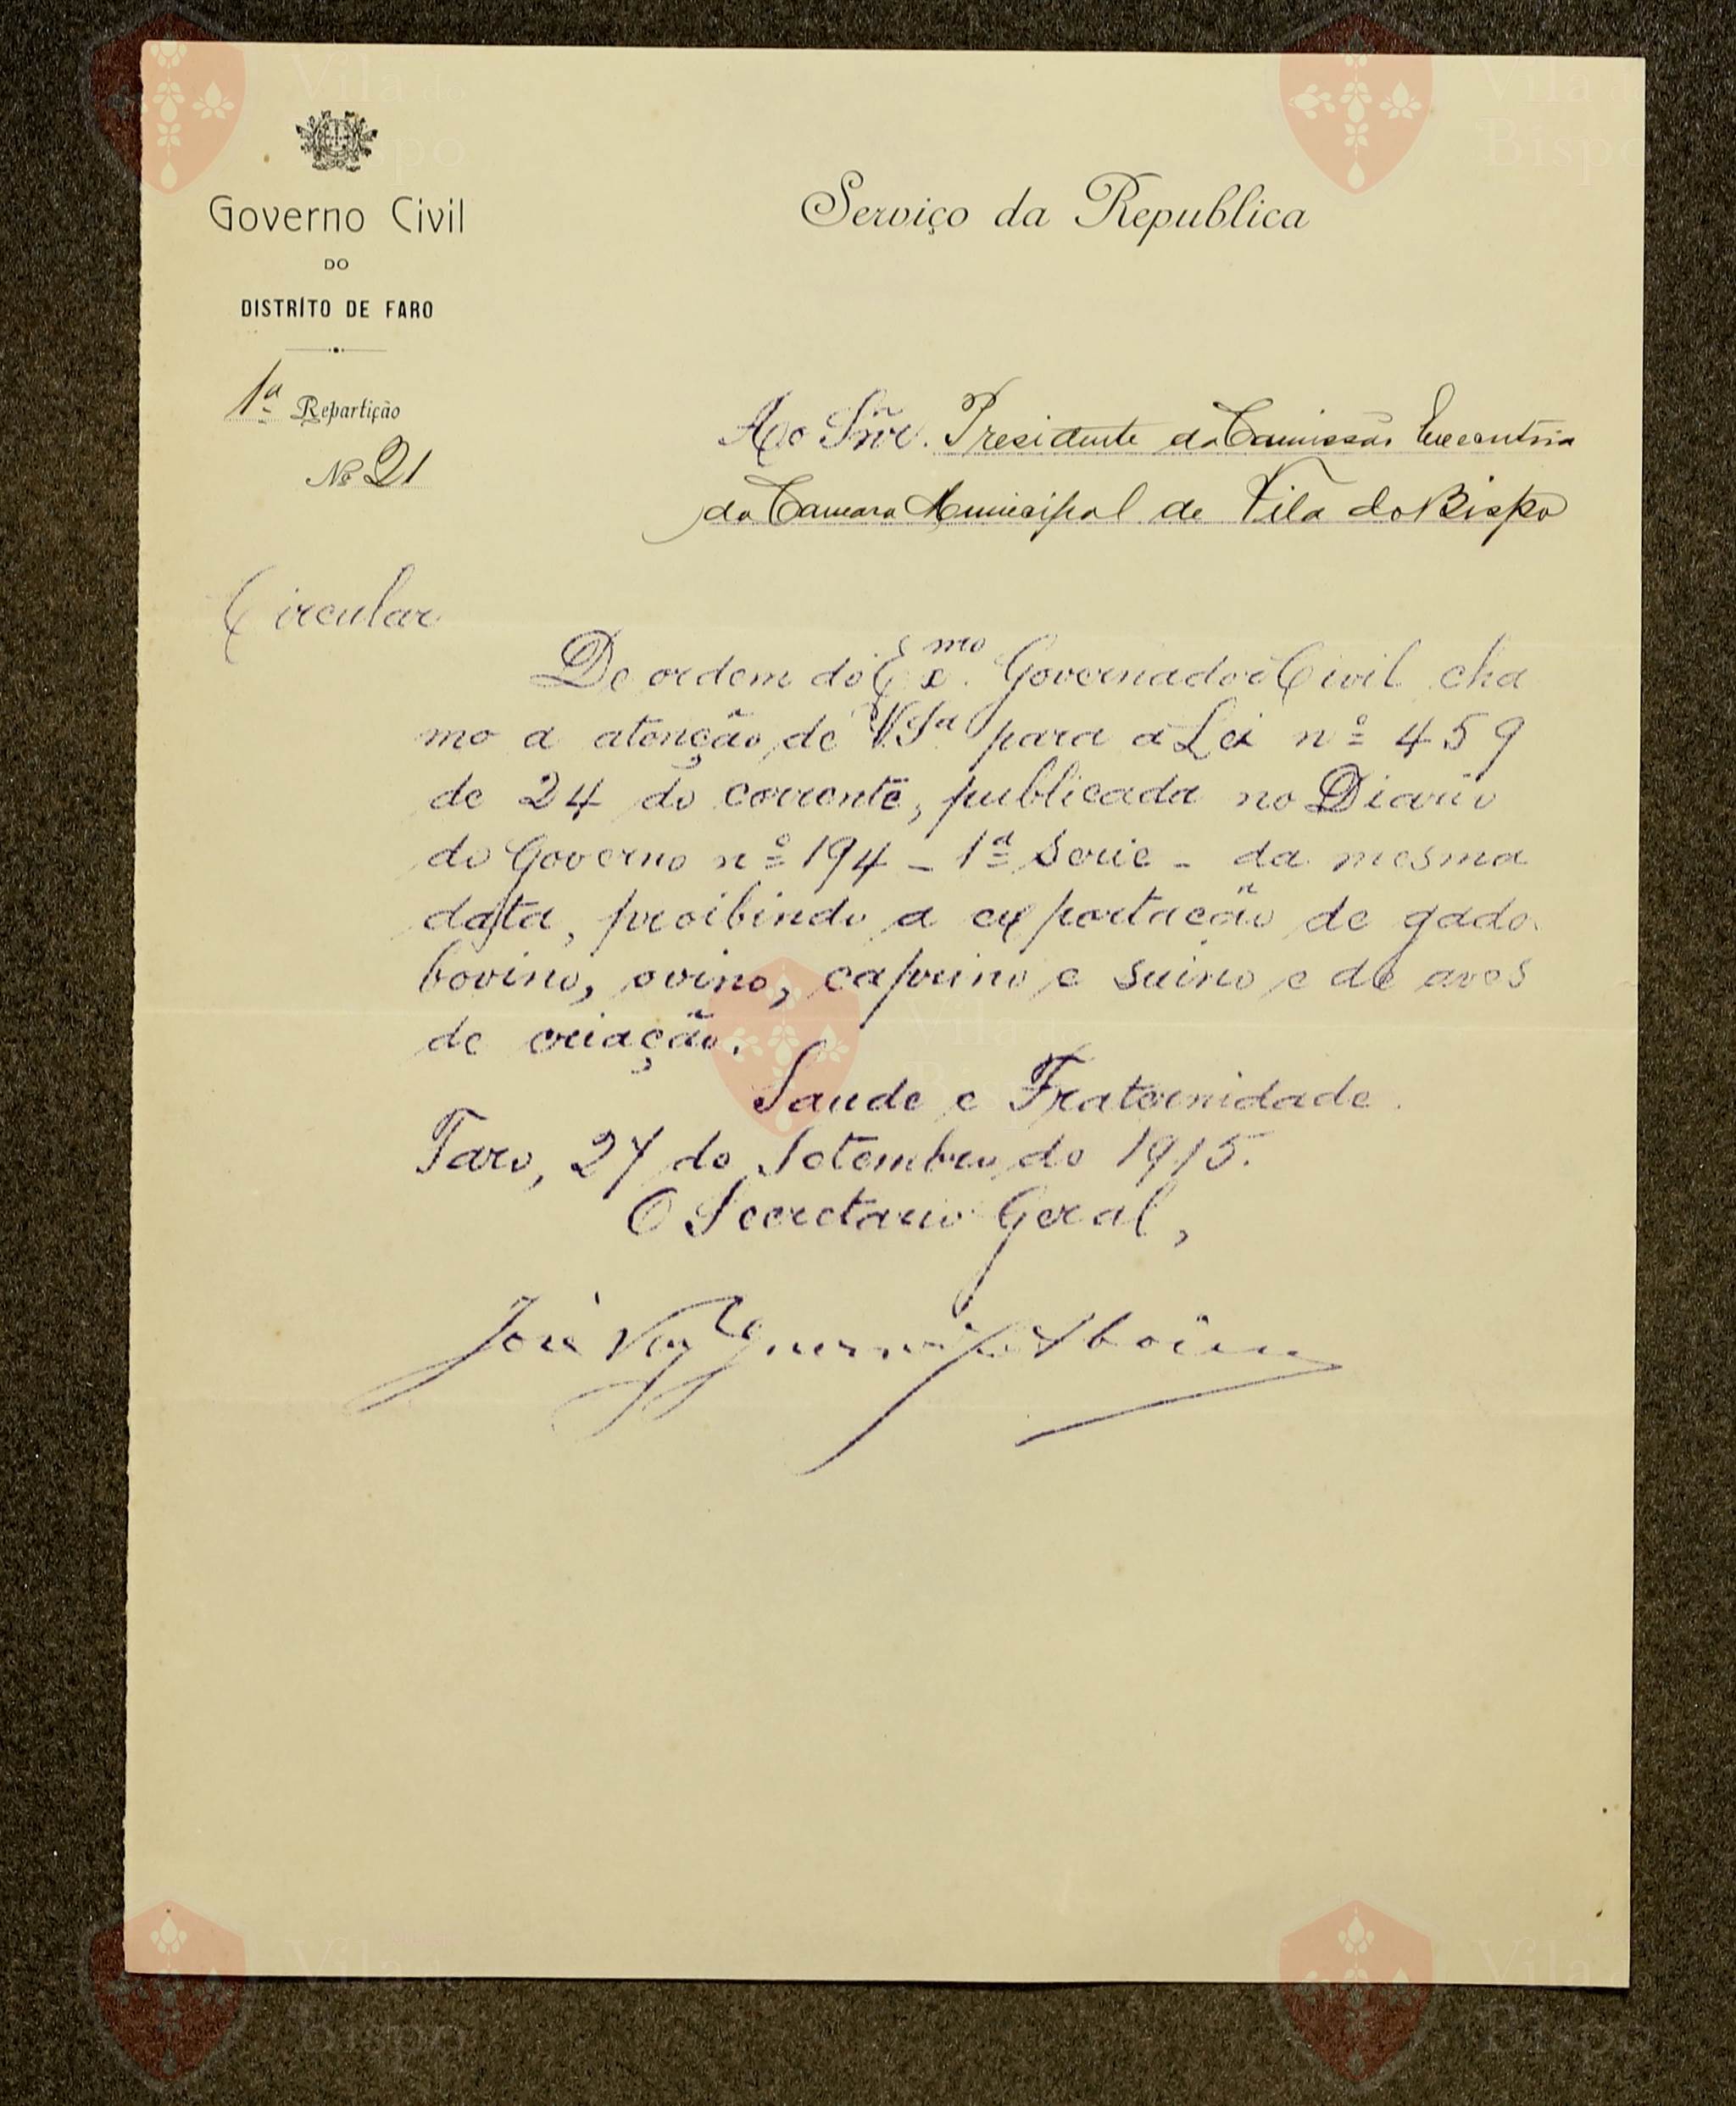 Governo Civil
DO
DISTRÍTO DE FARO
1ª Repartição
Nº 21
Serviço da Republica
Ao Snr. Presidente da Comissão Executiva
da Camara Municipal de Vila do Bispo
Circular
De ordem do Exmo. Governador Civil cha
mo a atenção de V. Sª para a Lei nº 459
de 24 do corrente, publicada no Diario
do Governo nº 194 - 1ª serie - da mesma
data, proibindo a exportacão de gado
bovino, ovino, caprino e suino e de aves
de criação.
Saude e Fraternidade.
Faro, 27 de Setembro de 1915.
O Secretario Geral,
José Vaz Aboim
Vila do Bispo
Vila do Bispo
Vila do Bispo
Vila do Bispo
Vila do Bispo